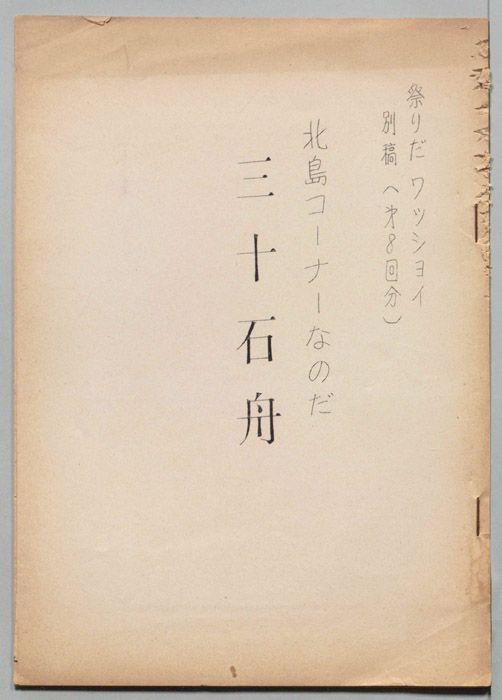 祭りだ ワッショイ
別稿 (才8回分)
北島コーナーなのだ
三十石舟